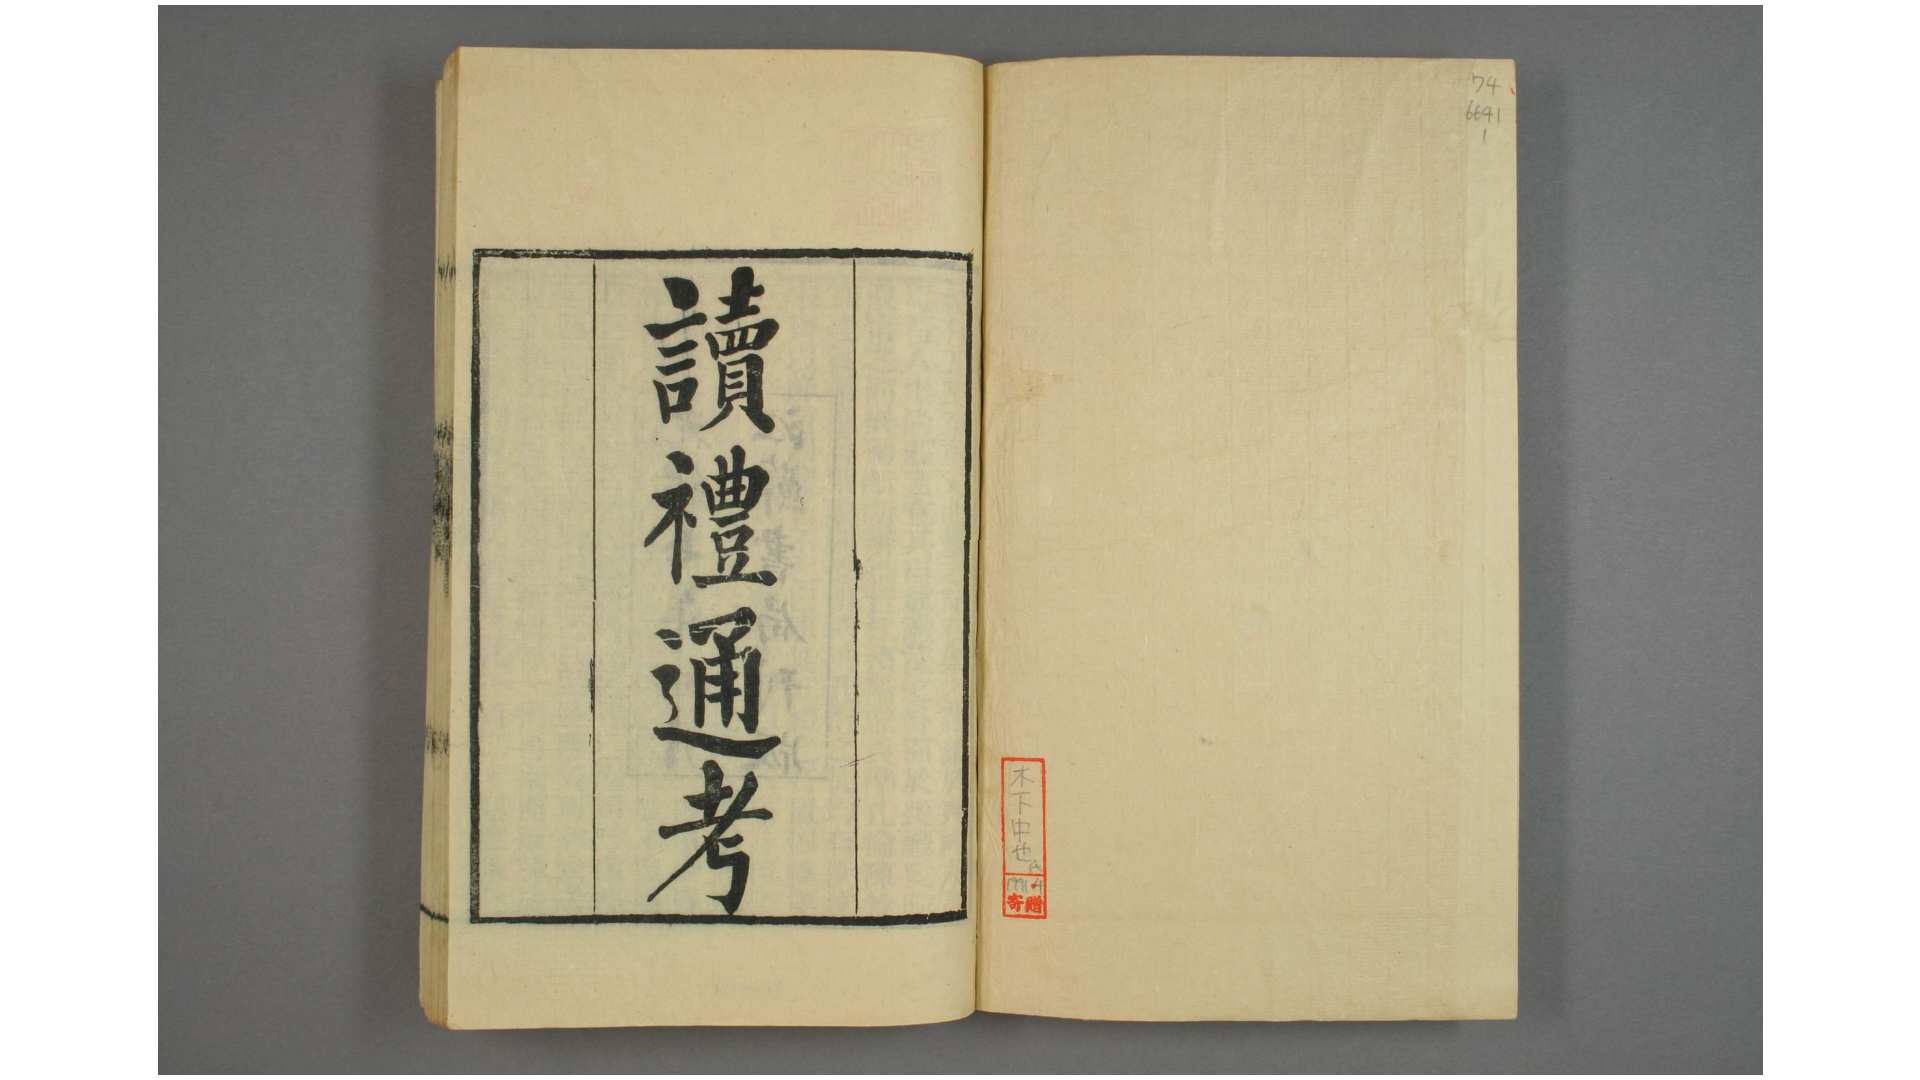 74
6641
1
木下中也
寄贈
讀禮通考